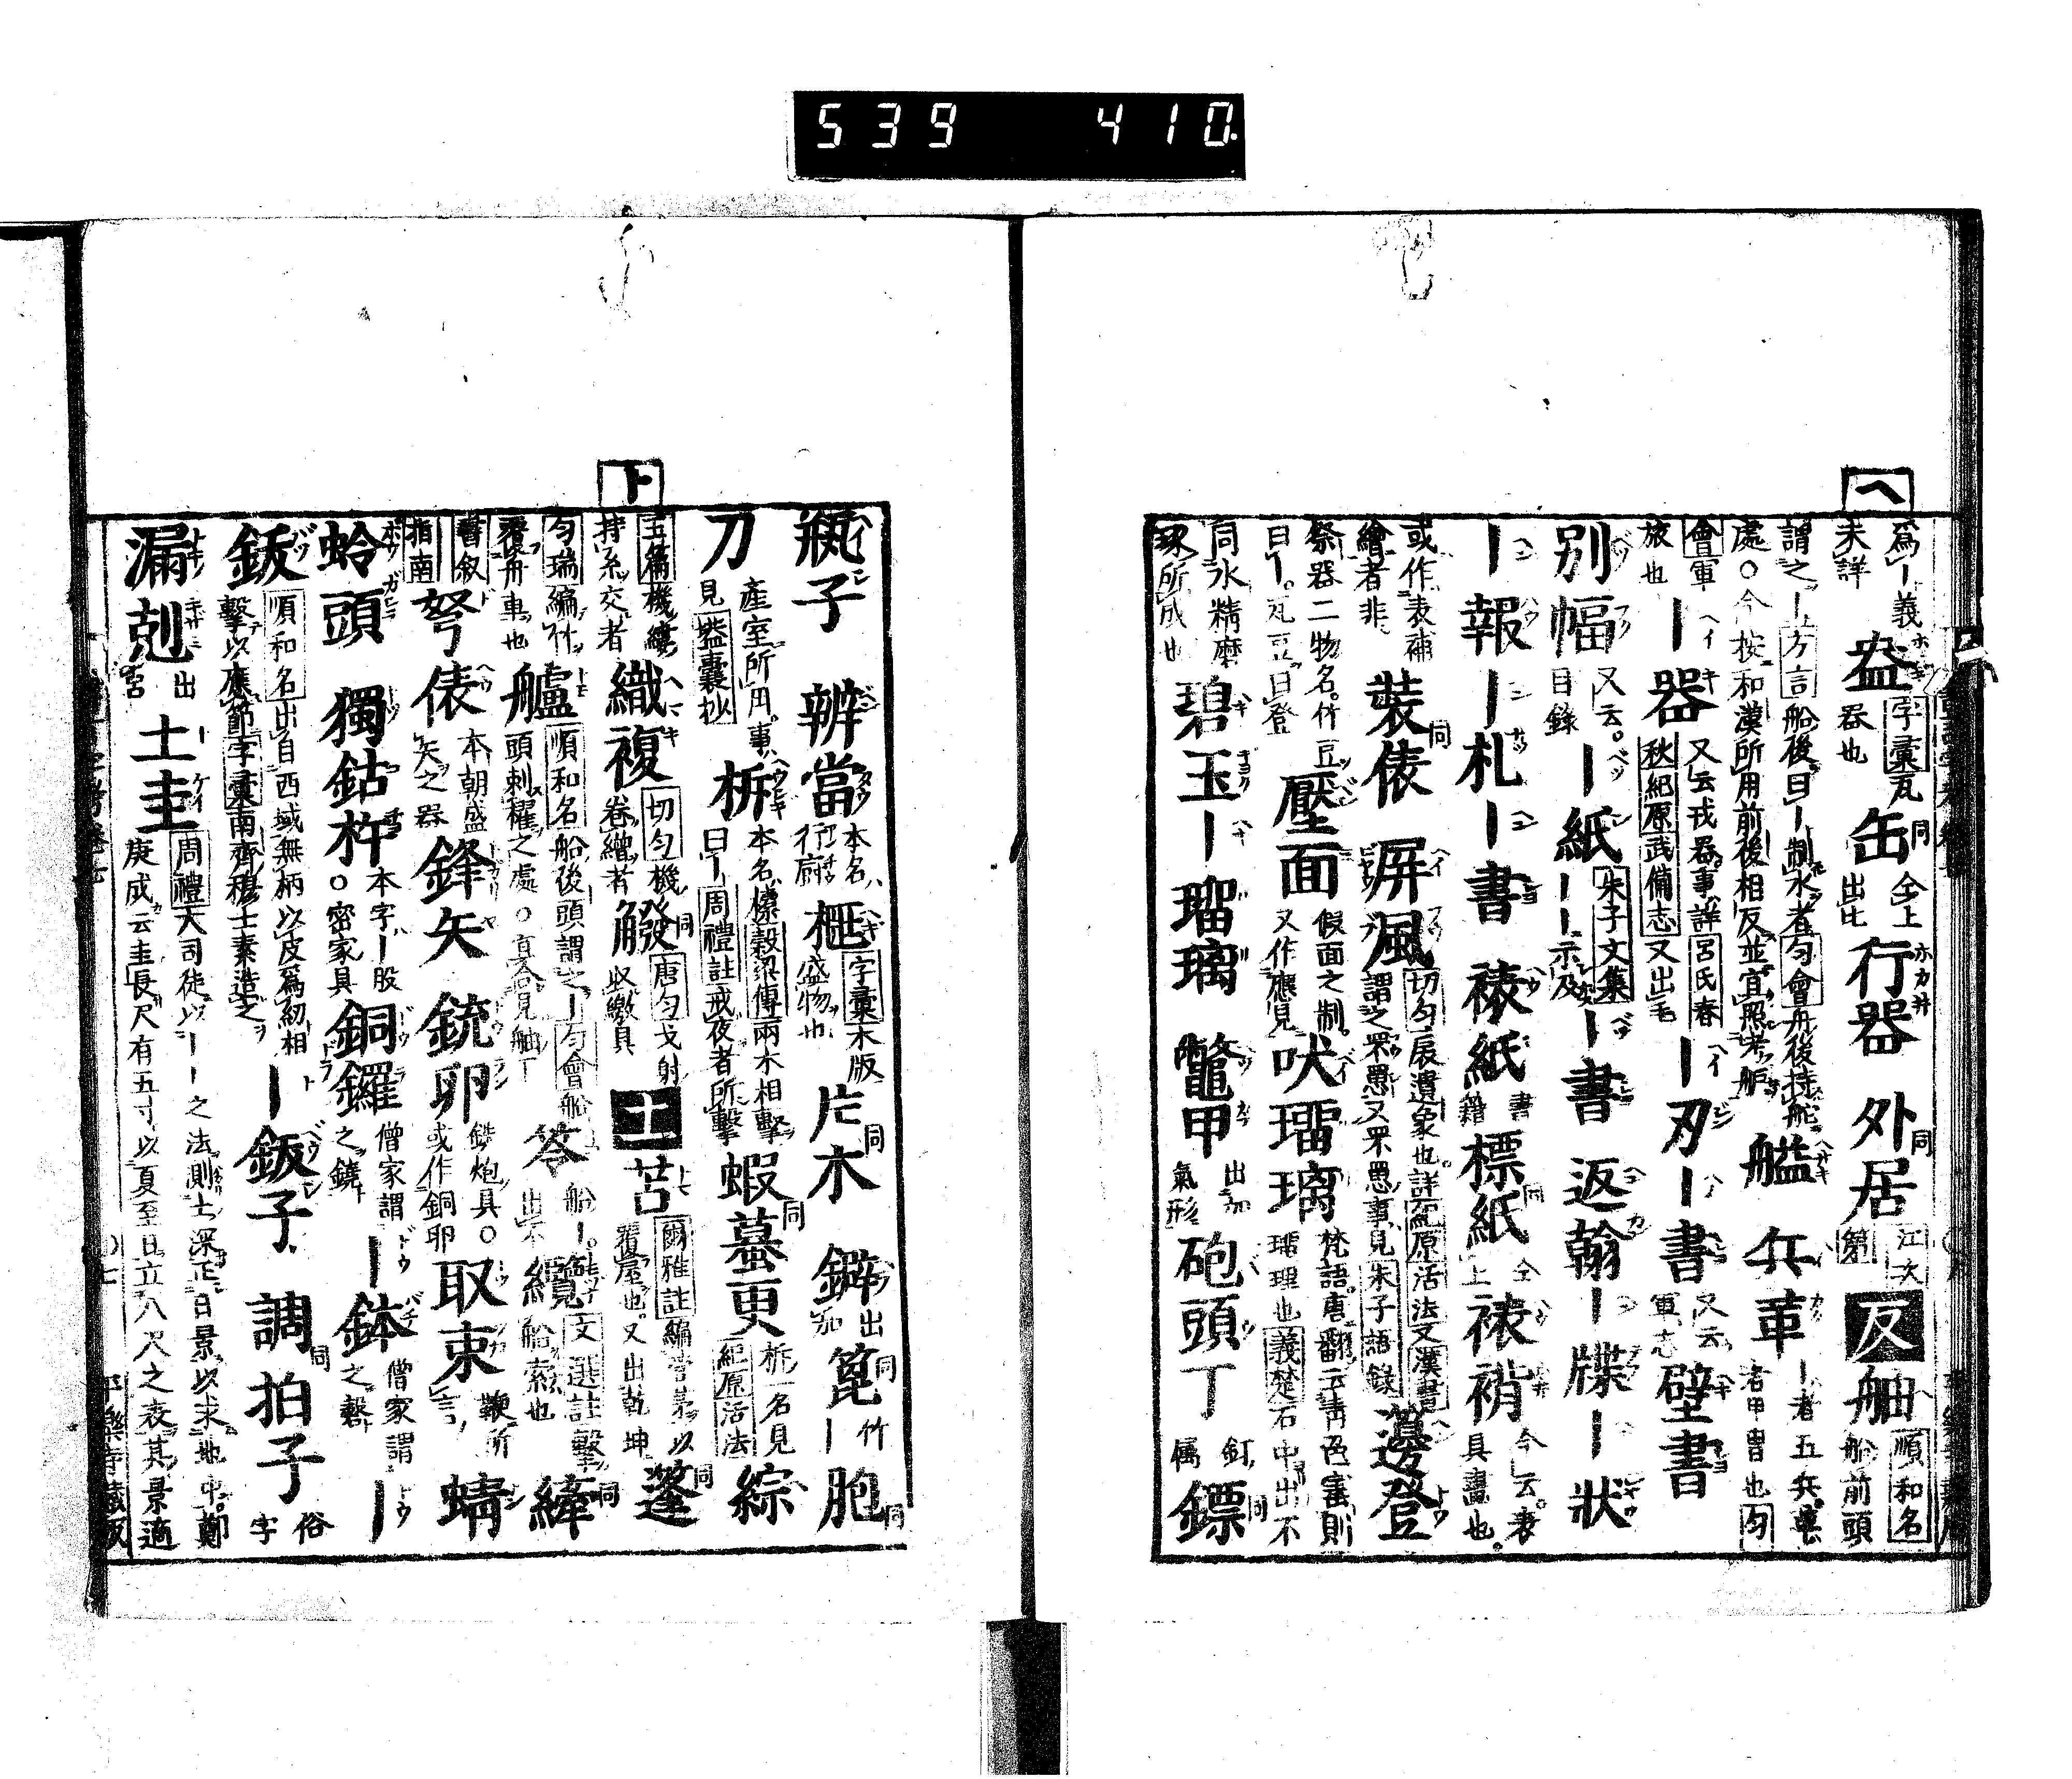 539 410
ヘ
爲―義 未詳 盎 字彙瓦 器也 缶 同 仝上 出比 行器 外居 同 江次 第 反 舳 順和名 船前頭
謂之―方言船後曰―制水者匀會舟後持舵
處○今按和漢所用前後相反並宜照考 艫 艦 兵革 ―者五兵 者甲冑也匀
會軍 旅也 ―器 又云戎器事詳呂氏春 秋紀原武備志又出毛 ―刃―書 又云 軍志 壁書
別幅 又云 目録 ―紙 朱子文集 ――示及 ―書 返翰―牒―状
―報―札―書 裱紙 書 籍 標紙 同 仝 上 裱褙 今云表 具畫也
或作表補 繪者非 裝俵 同 屏風 切匀扆遺象也詳紀原活法又漢書 謂之罘罳又罘罳事見朱子語録 邊登
祭器二物名竹豆 曰―瓦豆曰登 壓面 假面之制 又作應見 吠瑠璃 梵語唐翻云青色寳則 瑠理也義楚石中出不
同水精磨 琢所成也 碧玉―瑠璃 鼈甲 出加 氣形 砲頭丁 釘 属 鏢 同
瓶子 辨當 本名 行厨 棰 字彙木版 盛物也 片木 同 鎞 出 加 篦 同 竹 ―胞 同
刀 産室所用事 見壒嚢抄 柝 本名檪穀梁傳兩木相擊 曰―周禮註戒夜者所擊 蝦蟇更 同 柝一名見 紀原活法 綜
ト
玉篇機縷 持糸交者 織複 切匀機 卷繒者 𦥯 同 唐匀弋射 收繳具 土 苫 爾雅註編菅茅以 覆屋也又出乾坤 篷 同
匀瑞編竹 覆舟車也 艫 順和名船後頭謂之―匀會船 頭刺櫂之處○互見舳下 笭 船― 出不 纜 文選註擊 船索也 縴 同
書叙 指南 弩俵 本朝盛 矢之器 鋒矢 銃卵 銕炮具○ 或作銅卵 取束 鞭所 言 蜻
蛉頭 獨鈷杵 本字―股 ○密家具 銅鑼 僧家謂 之鐃 ―鉢 僧家謂 之磬 ―
鈸 順和名出自西域無柄以皮爲紉相 擊以應節字彙南齊穆士素造之 ―鈸子 調拍子 同 俗 字
漏剋 出 宮 土圭 周禮大司徒以――之法測土深正日景以求地中鄭 庚成云圭長尺有五寸以夏至日立八尺之表其景適
平樂寺藏板